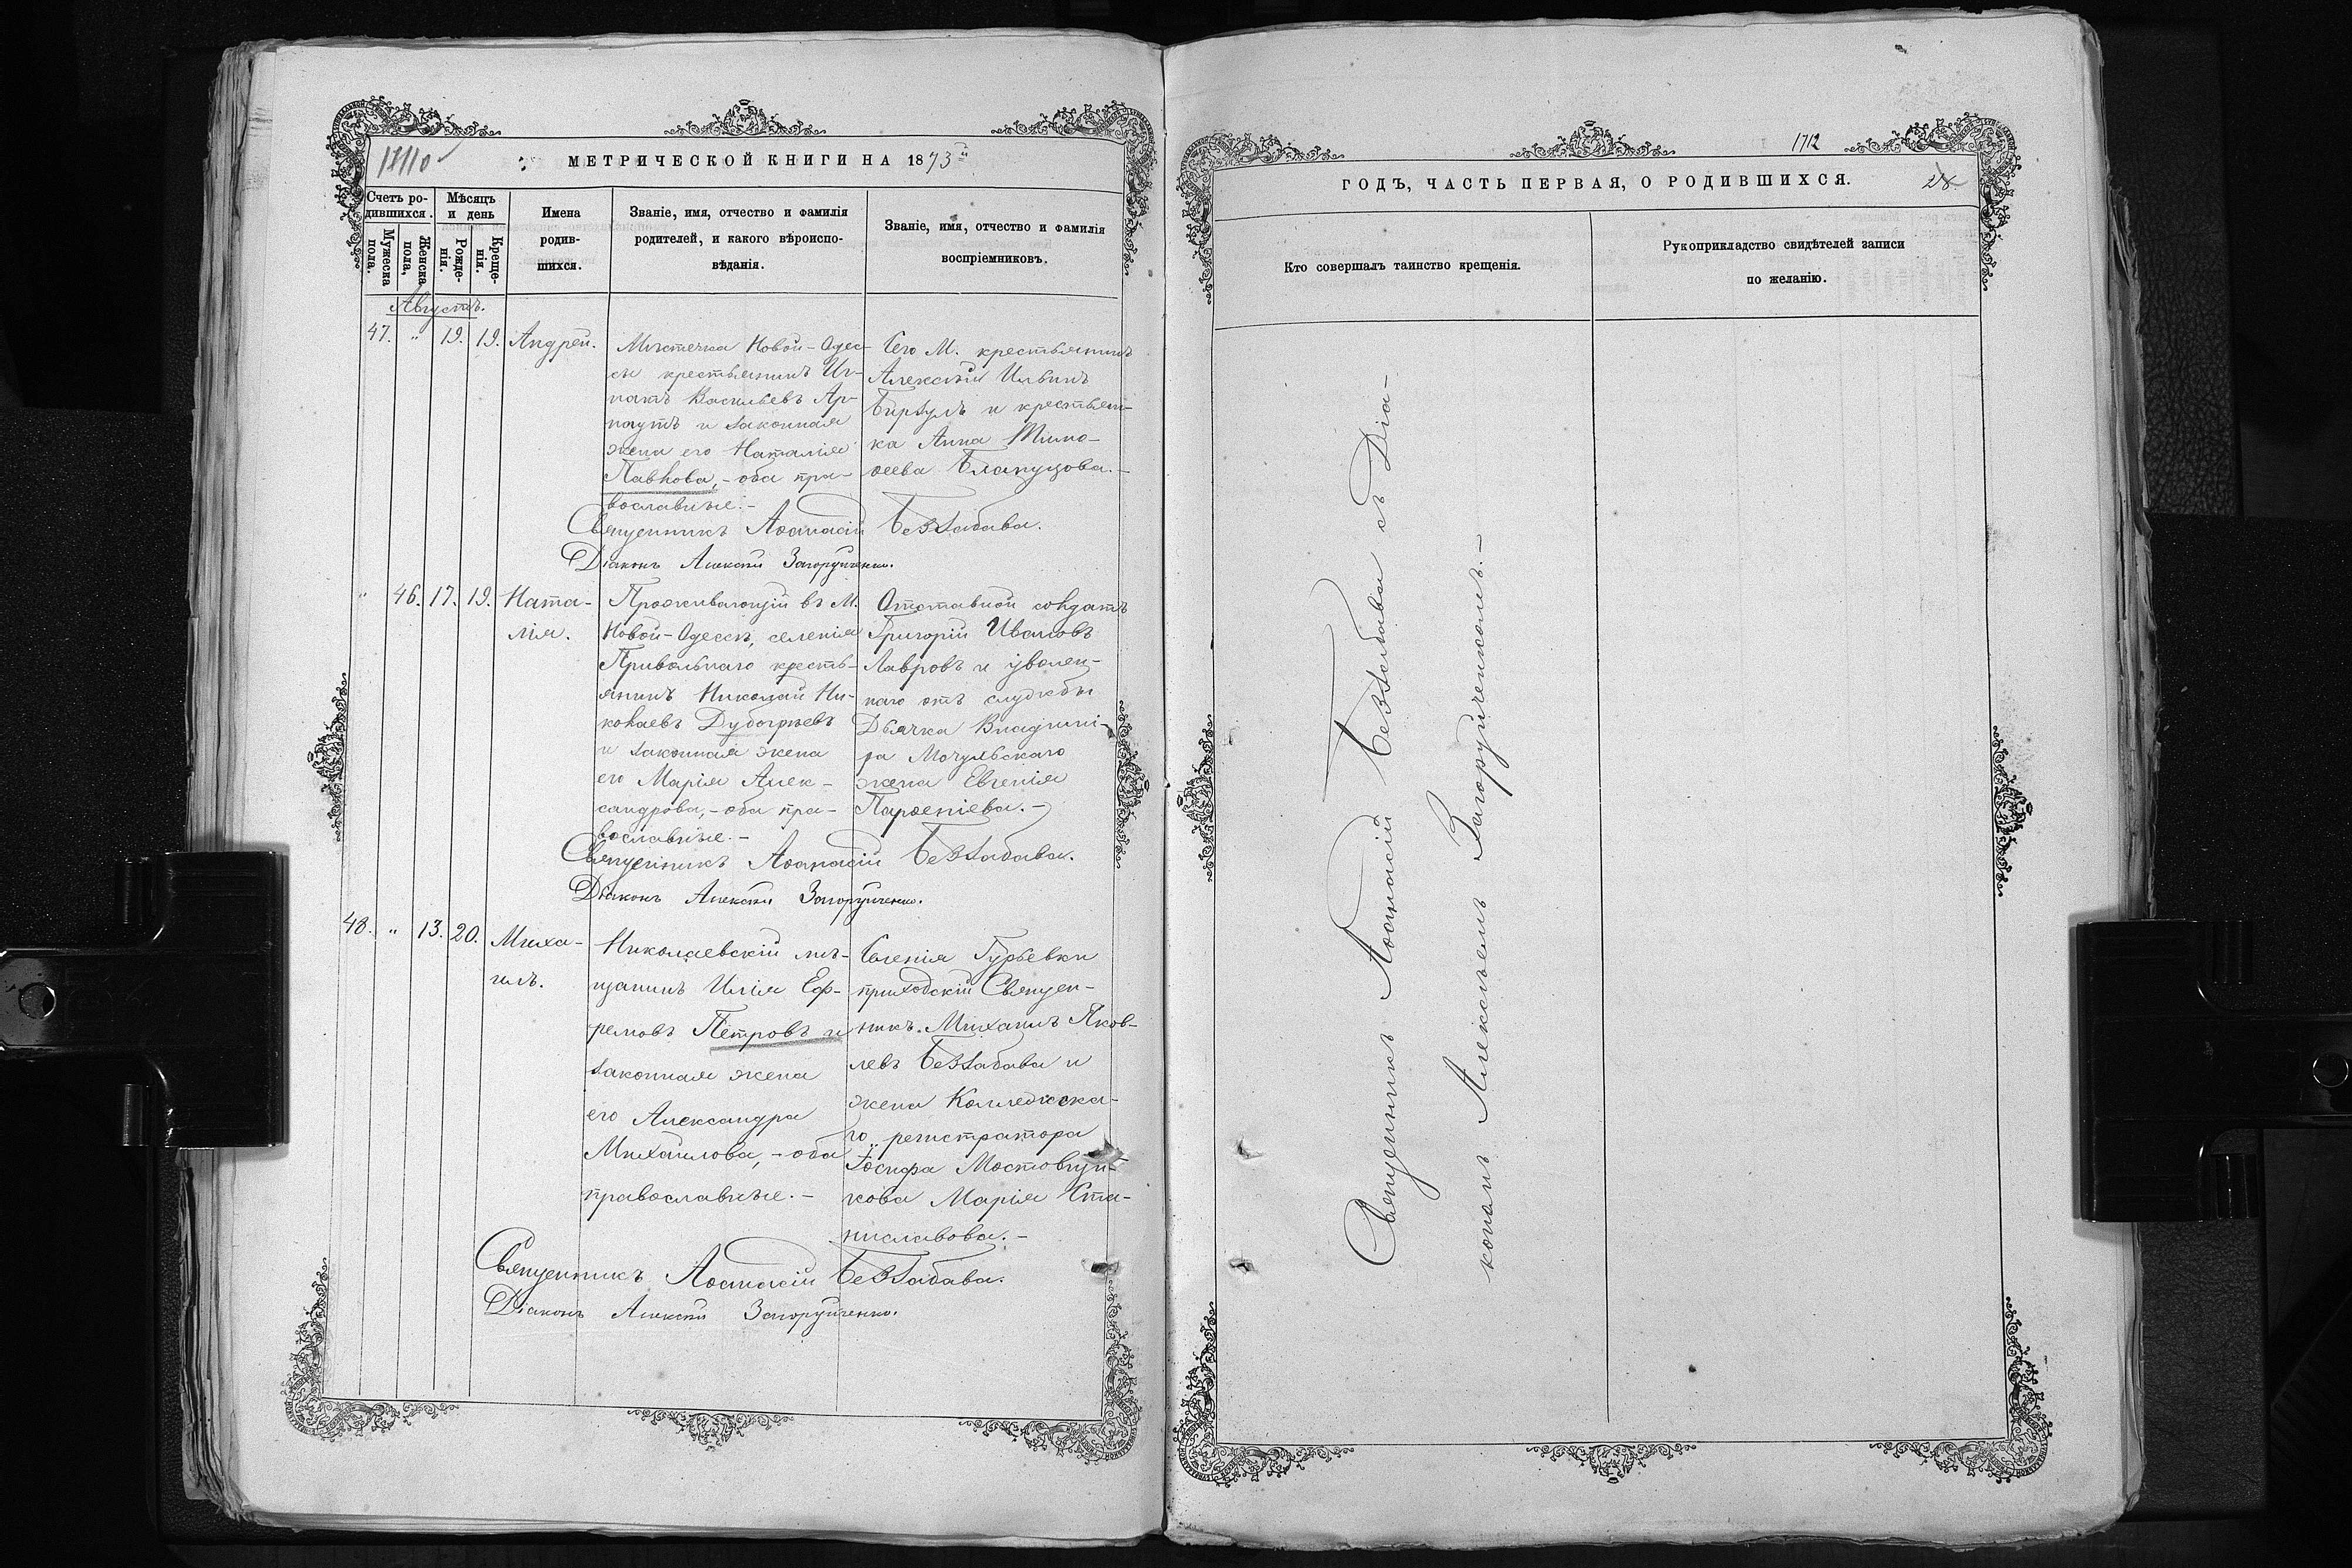 МЕТРИЧЕСКОЙ КНИГИ НА 1873й
Счетъ родившихся.
Мѣсяцъ и день
Мужеска пола.
Женска пола,
Рожденія.
Крещенія.
Имена родившихся.
Званіе, имя, отчество и фамилія родителей, и какого вѣроисповѣданія.
Званіе, имя, отчество и фамилія воспріемниковъ.
Августъ.
47. " 19. 19. Андрей.
Мѣстечка Новой-Одес-
сы крестьянинъ Иг-
натъ Васильевъ Ар-
наутъ и законная
жена его Наталія
Павлова, - оба пра-
вославные. -
Сего М. крестьянинъ
Алексѣй Ильинъ
и крестьян-
ка Анна Тимо-
ѳеева
Священникъ Аѳанасій Беззабава.
Діаконъ Алексѣй Загоруйченко.
" 46. 17. 19. Ната-
лія.
Проживающій въ М.
Новой-Одессѣ, селенія
Привольнаго кресть-
янинъ Николай Ни-
колаевъ Дубогрѣевъ
и законная жена
его Марія Алек-
сандрова, - оба пра-
вославные. -
Отставной солдатъ
Григорій Ивановъ
Лавровъ и уволен-
наго отъ службы
Дьячка Владимі-
ра Мочульскаго
жена Евгенія
Парѳеніева. -
Священникъ Аѳанасій Беззабава.
Діаконъ Алексѣй Загоруйченко.
48. " 13. 20. Миха-
илъ.
Николаевскій мѣ-
щанинъ Илія Еф-
ремовъ Петровъ и
законная жена
его Александра
Михайлова, - оба
православные. -
Селенія Гурьевки
приходскій Священ-
никъ Михаилъ Яков-
левъ Беззабава и
жена Коллежска-
го регистратора
Іосифа
Марія Ста-
ниславова. -
Священникъ Аѳанасій Беззабава.
Діаконъ Алексѣй Загоруйченко.
1712
ГОДЪ, ЧАСТЬ ПЕРВАЯ, О РОДИВШИХСЯ.
28
Кто совершалъ таинство крещенія.
Рукоприкладство свидѣтелей записи
по желанію.
Священникъ Аѳанасій Беззабава съ Діа-
кономъ Алексѣемъ Загоруйченкомъ. -